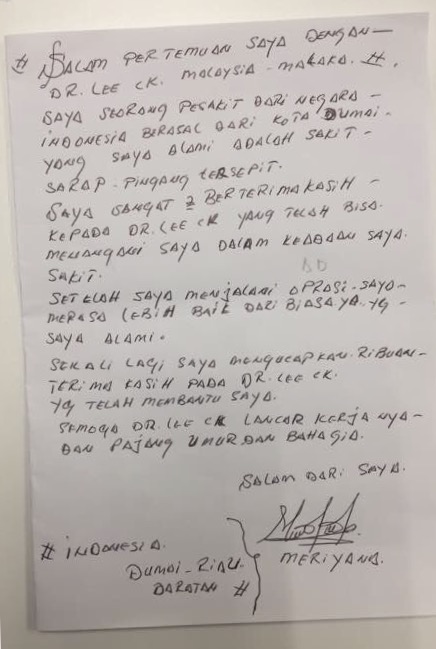 # SALAM PERTEMUAN SAYA DENGAN -
DR. LEE CK. MALAYSIA - MALAKA. #.
SAYA SEORANG PESAKIT DARI NEGARA -
INDONESIA BERASAL DARI KOTA DUMAI.
YANG SAYA ALAMI ADALAH SAKIT -
SARAP - PINGANG TERSEPIT.
SAYA SANGAT 2 BERTERIMAKASIH -
KEPADA DR. LEE CK YANG TELAH BISA.
MENANGANI SAYA DALAM KEADAAN SAYA.
SAKIT.
SETELAH SAYA MENJALANI OPRASI. SAYA -
MERASA LEBIH BAIK DARI BIASAYA. YG -
SAYA ALAMI.
SEKALI LAGI SAYA MENGUCAPKAN. RIBUAN -
TERIMA KASIH PADA DR. LEE CK.
YG TELAH MEMBANTU SAYA.
SEMOGA DR. LEE CK LANCAR KERJA NYA -
DAN PAJANG UMUR DAN BAHAGIA.
SALAM DARI SAYA.
MERIYANA.
# INDONESIA.
DUMAI - RIAU.
DARATAN #